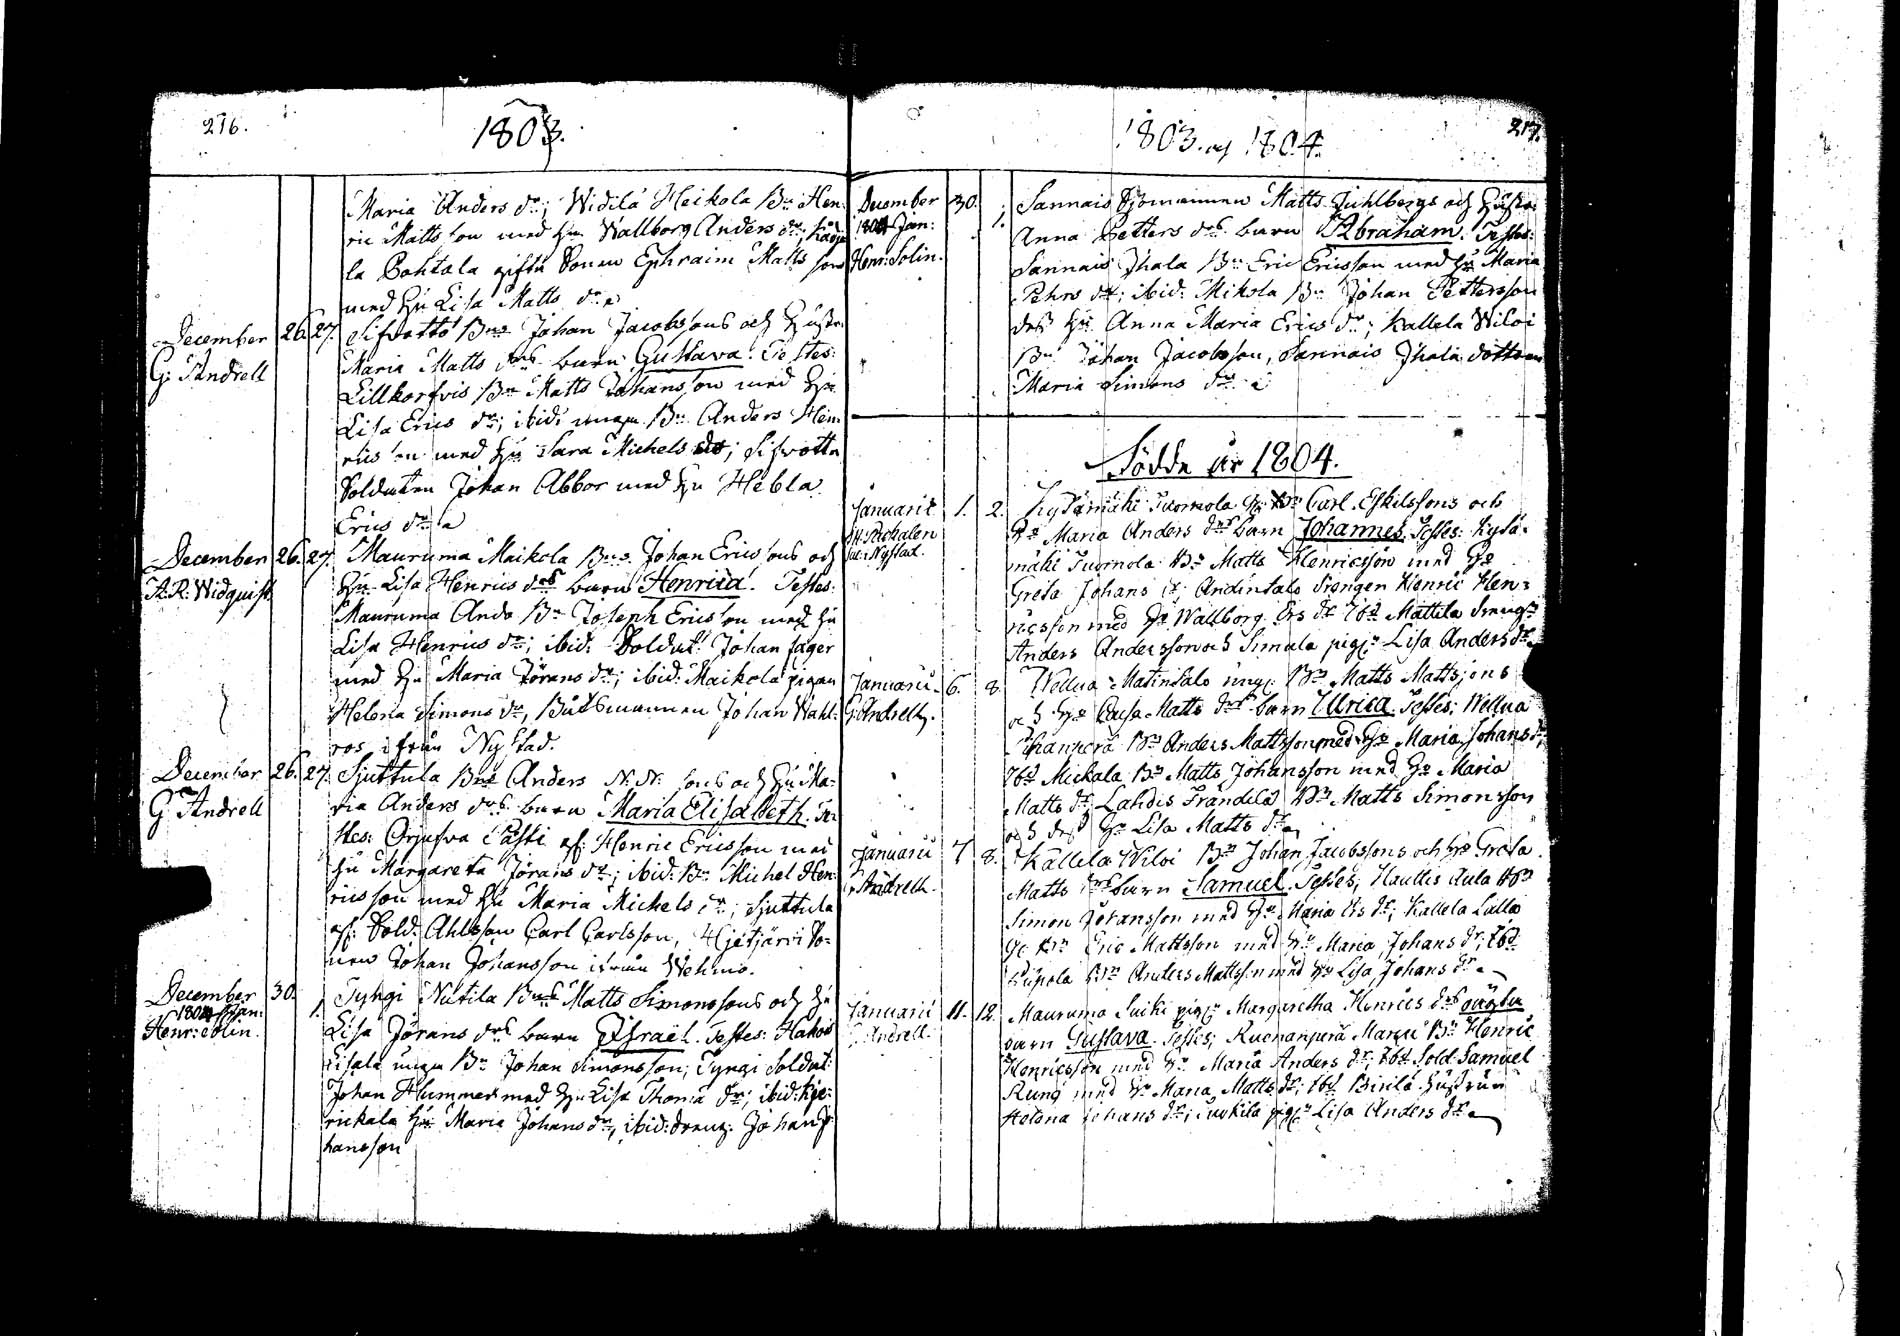 216.
1803.
Maria Anders dr; Widilä Heikola Bn Hen-
ric Matts son med Hu Wallborg Anders dr;
la Pohtola gifte Sonen Ephraim Matts son
med Hu Lisa Matts dr
December 26. 27. Sifvotto Bns Johan Jacobssons och Hustr:
G. Andrell Maria Matts drs barn Gustava. Testes:
Lillkorfvis Bn Matts Johansson med Hu
Lisa Erics dr; ibid: unge Bn Anders Hen-
rics son med Hu Sara Michels dr; Sifvotto
Soldaten Johan Abbor med Hu Hebla
Erics dr
December 26. 27. Mauruma Maikola Bns Johan Erics sons och
A. R. Widquist. Hu Lisa Henrics drs barn Henrica. Testes:
Mauruma Ando Bn Joseph Ericsson med Hu
Lisa Henrics dr; ibid: Soldat: Johan Jager
med Hu Maria Jörans dr; ibid: Maikola pigan
Helena Simons dr, Båtsmannen Johan Wahl-
ros ifrån Nystad.
December 26. 27. Sjuttula Bns Anders N. N. sons och Hu Ma-
G. Andrell ria Anders drs barn Maria Elisabeth. Te-
stes: Orjasva Pasti Henric Ericsson med
Hu Margareta Jörans dr; ibid: Bn Michel Hen-
ricsson med Hu Maria Michels dr; Sjuttula
Sold: Ahlsson Carl Carlsson, Hjetjärvi So-
nen Johan Johansson ifrån Wehmo.
December 30. Tyngi Nutila Bns Matts Simonssons och Hu
1804 Jan: 1. Lisa Jörans drs barn Israel. Testes: Hakois
Henr: Solin. Eisala unge Bn Johan Simonsson; Tyngi Soldat:
Johan Hummer med Hu Lisa Thomæ dr; ibid:
rickala Hu Maria Johans dr, ibid: dreng: Johan Jo-
hansson
217.
1803. och 1804.
December 30. Sannais Sjömannen Matts Juhlbergs och Hustr:
1804 Jan: 1. Anna Petters drs barn Abraham. Testes:
Henr: Solin. Sannais Jhala Bn Eric Ericsson med Hu Maria
Pehrs dr; ibid: Mikola Bn Johan Pettersson
dess Hu Anna Maria Erics dr; Kallela Wiloi
Bn Johan Jacobsson, Sannais Jhala dottren
Maria Simons dr
Födde år 1804.
Januarii 1. 2. Kylämäki Tuomola Bn Carl Eskilssons och
Nystad. Hu Maria Anders drs barn Johannes. Testes: Kylä-
mäki Tuomola Bn Matts Henricsson med Hu
Greta Johans dr; Andintalo Drengen Henric Hen-
ricsson med Hu Wallborg Ers dr Ibd Mattila drengn
Anders Andersson och Simula pign Lisa Anders dr
Januarii 6. 8. Wellua Matintalo unge Bn Matts Mattssons
G. Andrell. och Hu Caisa Matts drs barn Ulrica. Testes; Wellua
Bn Anders Mattsson med Hu Maria Johans dr;
Ibd Mickala Bn Matts Johansson med Hu Maria
Matts dr Lahdis Frändilä Bn Matts Simonsson
och dess Hu Lisa Matts dr
Januarii 7 8. Kallela Wiloi Bn Johan Jacobssons och Hu Greta
G. Andrell. Matts drs barn Samuel. Testes; Hauttis Aula Bn
Simon Johansson med Hu Maria Ers dr; Kallela Lalla
Bn Eric Mattsson med Hu Maria Johans dr; Ibd
Bn Anders Mattsson med Hu Lisa Johans dr
Januarii 11. 12. Mauruma Suiki pign Margaretha Henrics drs oägta
G. Andrell. barn Gustava. Testes; Ruonanperä Bn Henric
Henricsson med Hu Maria Anders dr; Ibd Sold. Samuel
Rung med Hu Maria Matts dr; Ibd Birilä Hustrun
Helena Johans dr; pign Lisa Anders dr